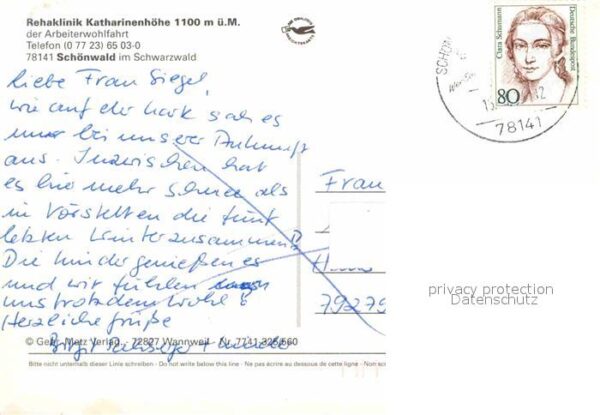 Rehaklinik Katharinenhöhe 1100 m ü.M.
der Arbeiterwohlfahrt
Telefon (0 77 23) 65 03-0
78141 Schönwald im Schwarzwald
Liebe Frau Siegel,
wie auf der sah es
nur bei unserer Ankunft
aus. Inzwischen hat
es hier mehr Schnee als
in die fünf
letzten Winter zusammen
Die Kinder genießen es
und wir fühlen
uns trotzdem wohl
Herzliche Grüße
Birgit
Frau
79279
© Metz Verlag - 72827 Wannweil - Nr. 7741 326 560
Bitte nicht unterhalb dieser Linie schreiben - Do not write below this line - Ne pas écrire au dessous de cette ligne - Non
Clara Schumann
Deutsche Bundespost
80
SCHÖN
78141
privacy protection
Datenschutz